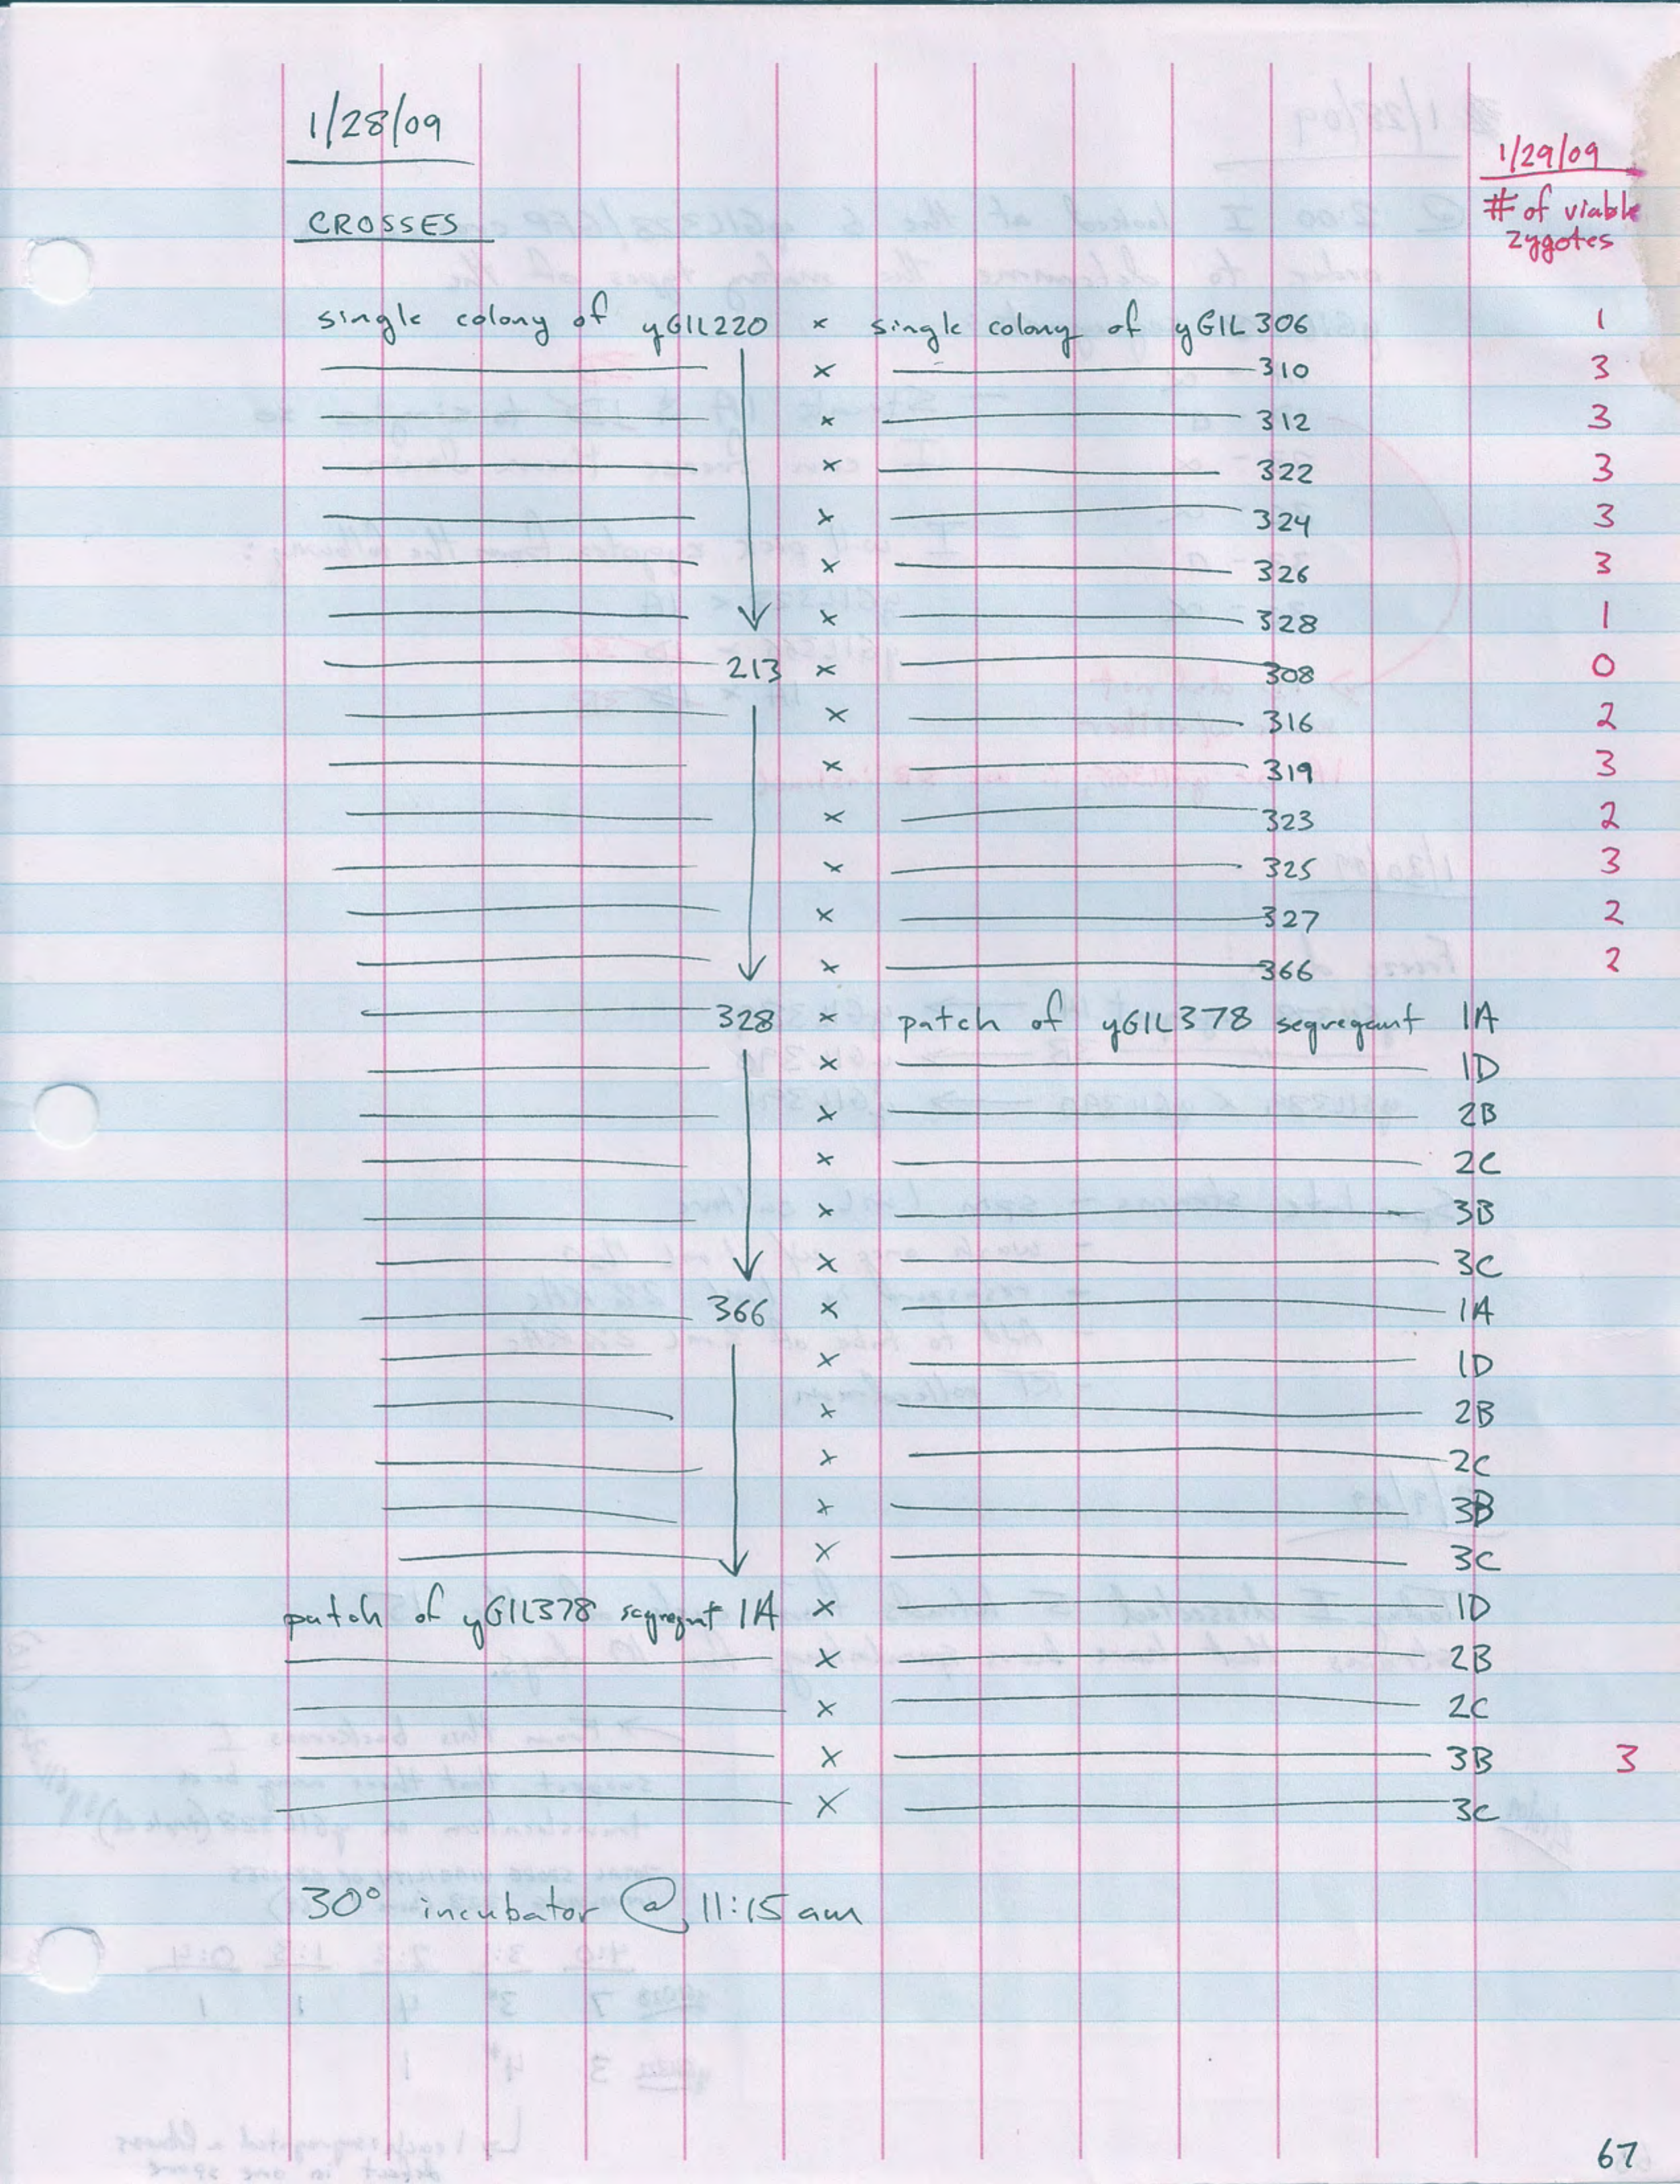 1/28/09
1/29/09
CROSSES
# of viable
zygotes
single colony of yGIL220 × single colony of yGIL306 1
× 310 3
× 312 3
× 322 3
× 324 3
× 326 3
× 328 1
213 × 308 0
× 316 2
× 319 3
× 323 2
× 325 3
× 327 2
× 366 2
328 × patch of yGIL378 segregant 1A
× 1D
× 2B
× 2C
× 3B
× 3C
366 × 1A
× 1D
× 2B
× 2C
× 3B
× 3C
patch of yGIL378 segregant 1A × 1D
× 2B
× 2C
× 3B 3
× 3C
30° incubator @ 11:15 am
67